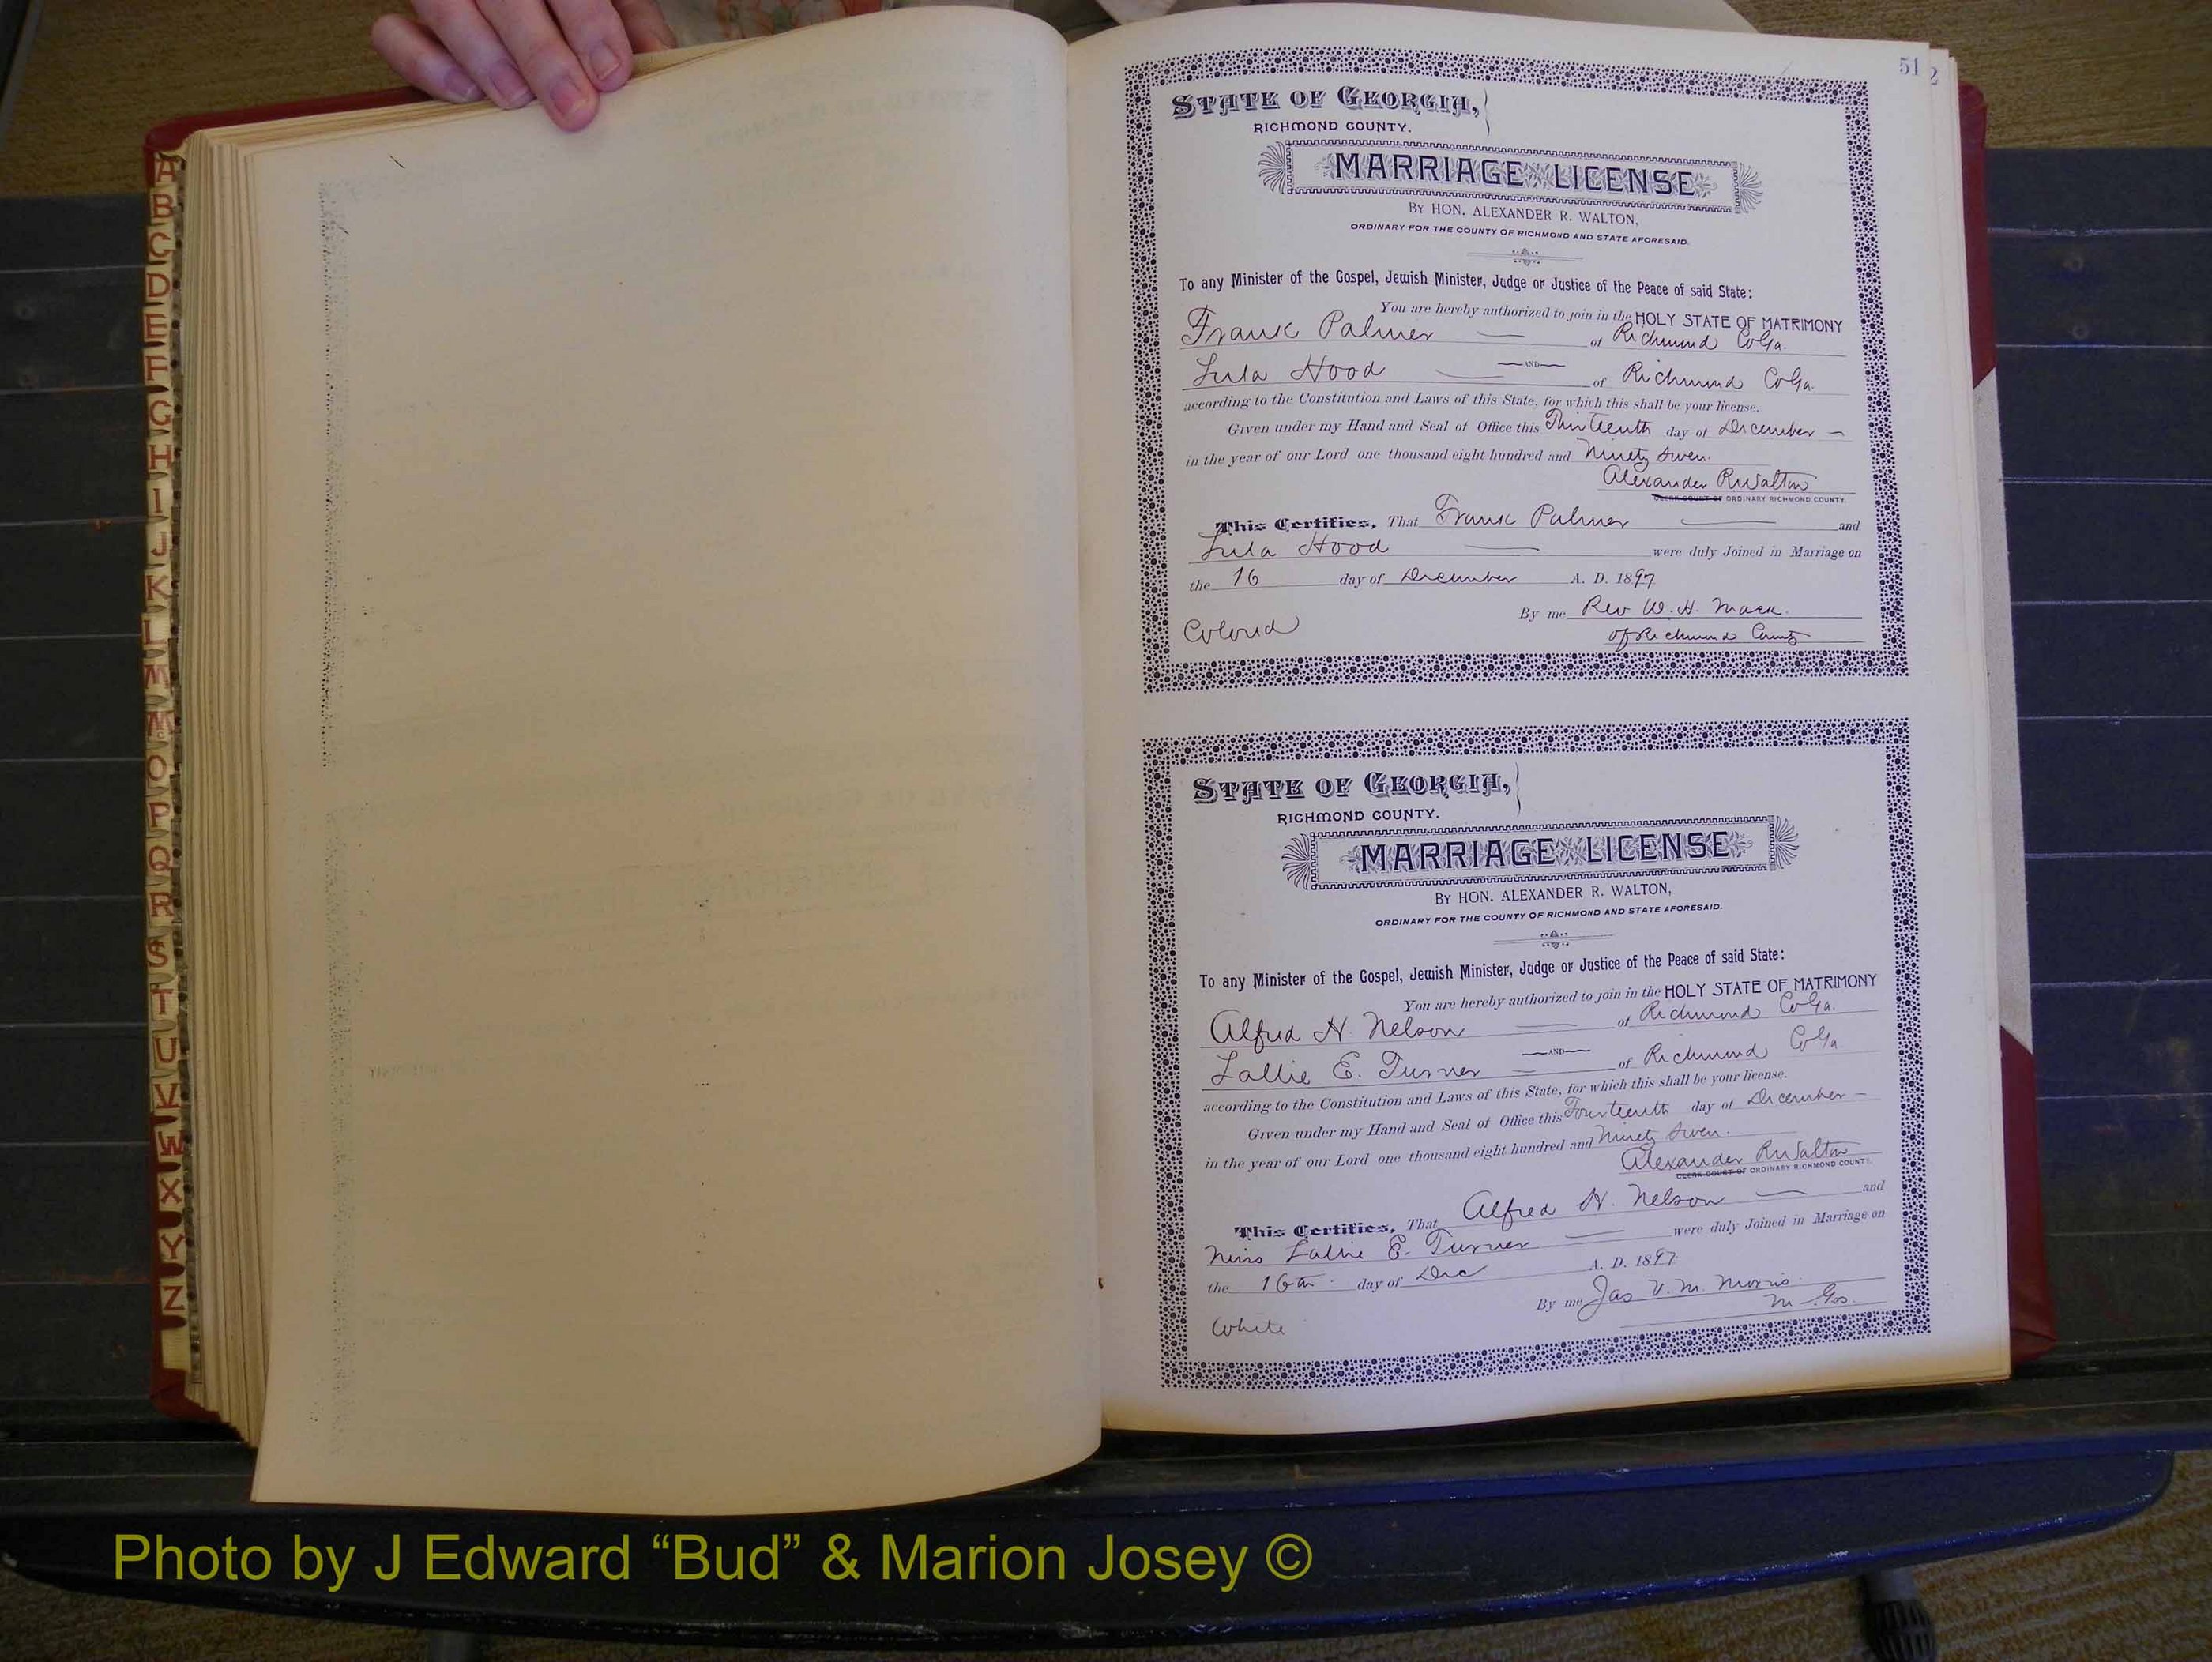 A
B
C
D
E
F
G
H
I
J
K
L
M
Mc
O
P
Q
R
S
T
U
V
W
X
Y
Z
51
2
STATE OF GEORGIA,
RICHMOND COUNTY.
MARRIAGE LICENSE
BY HON. ALEXANDER R. WALTON,
ORDINARY FOR THE COUNTY OF RICHMOND AND STATE AFORESAID.
To any Minister of the Gospel, Jewish Minister, Judge or Justice of the Peace of said State:
You are hereby authorized to join in the HOLY STATE OF MATRIMONY
Frank Palmer of Richmond Co Ga.
—AND—
Lula Hood of Richmond Co Ga.
according to the Constitution and Laws of this State, for which this shall be your license.
Given under my Hand and Seal of Office this Thirteenth day of December
in the year of our Lord one thousand eight hundred and Ninety Seven.
Alexander R Walton
CLERK COURT OF ORDINARY RICHMOND COUNTY.
This Certifies, That Frank Palmer and
Lula Hood were duly Joined in Marriage on
the 16 day of December A. D. 1897
By me Rev W. H. Mack.
Colored of Richmond County
STATE OF GEORGIA,
RICHMOND COUNTY.
MARRIAGE LICENSE
BY HON. ALEXANDER R. WALTON,
ORDINARY FOR THE COUNTY OF RICHMOND AND STATE AFORESAID.
To any Minister of the Gospel, Jewish Minister, Judge or Justice of the Peace of said State:
You are hereby authorized to join in the HOLY STATE OF MATRIMONY
Alfred H. Nelson of Richmond Co Ga.
—AND—
Lallie E. Turner of Richmond Co Ga
according to the Constitution and Laws of this State, for which this shall be your license.
Given under my Hand and Seal of Office this Fourteenth day of December
in the year of our Lord one thousand eight hundred and Ninety Seven.
Alexander R Walton
CLERK COURT OF ORDINARY RICHMOND COUNTY.
This Certifies, That Alfred H. Nelson and
Miss Lallie E. Turner were duly Joined in Marriage on
the 16th day of Dec A. D. 1897
By me Jas V. M. Morris
M Gos.
White
Photo by J Edward “Bud” & Marion Josey ©